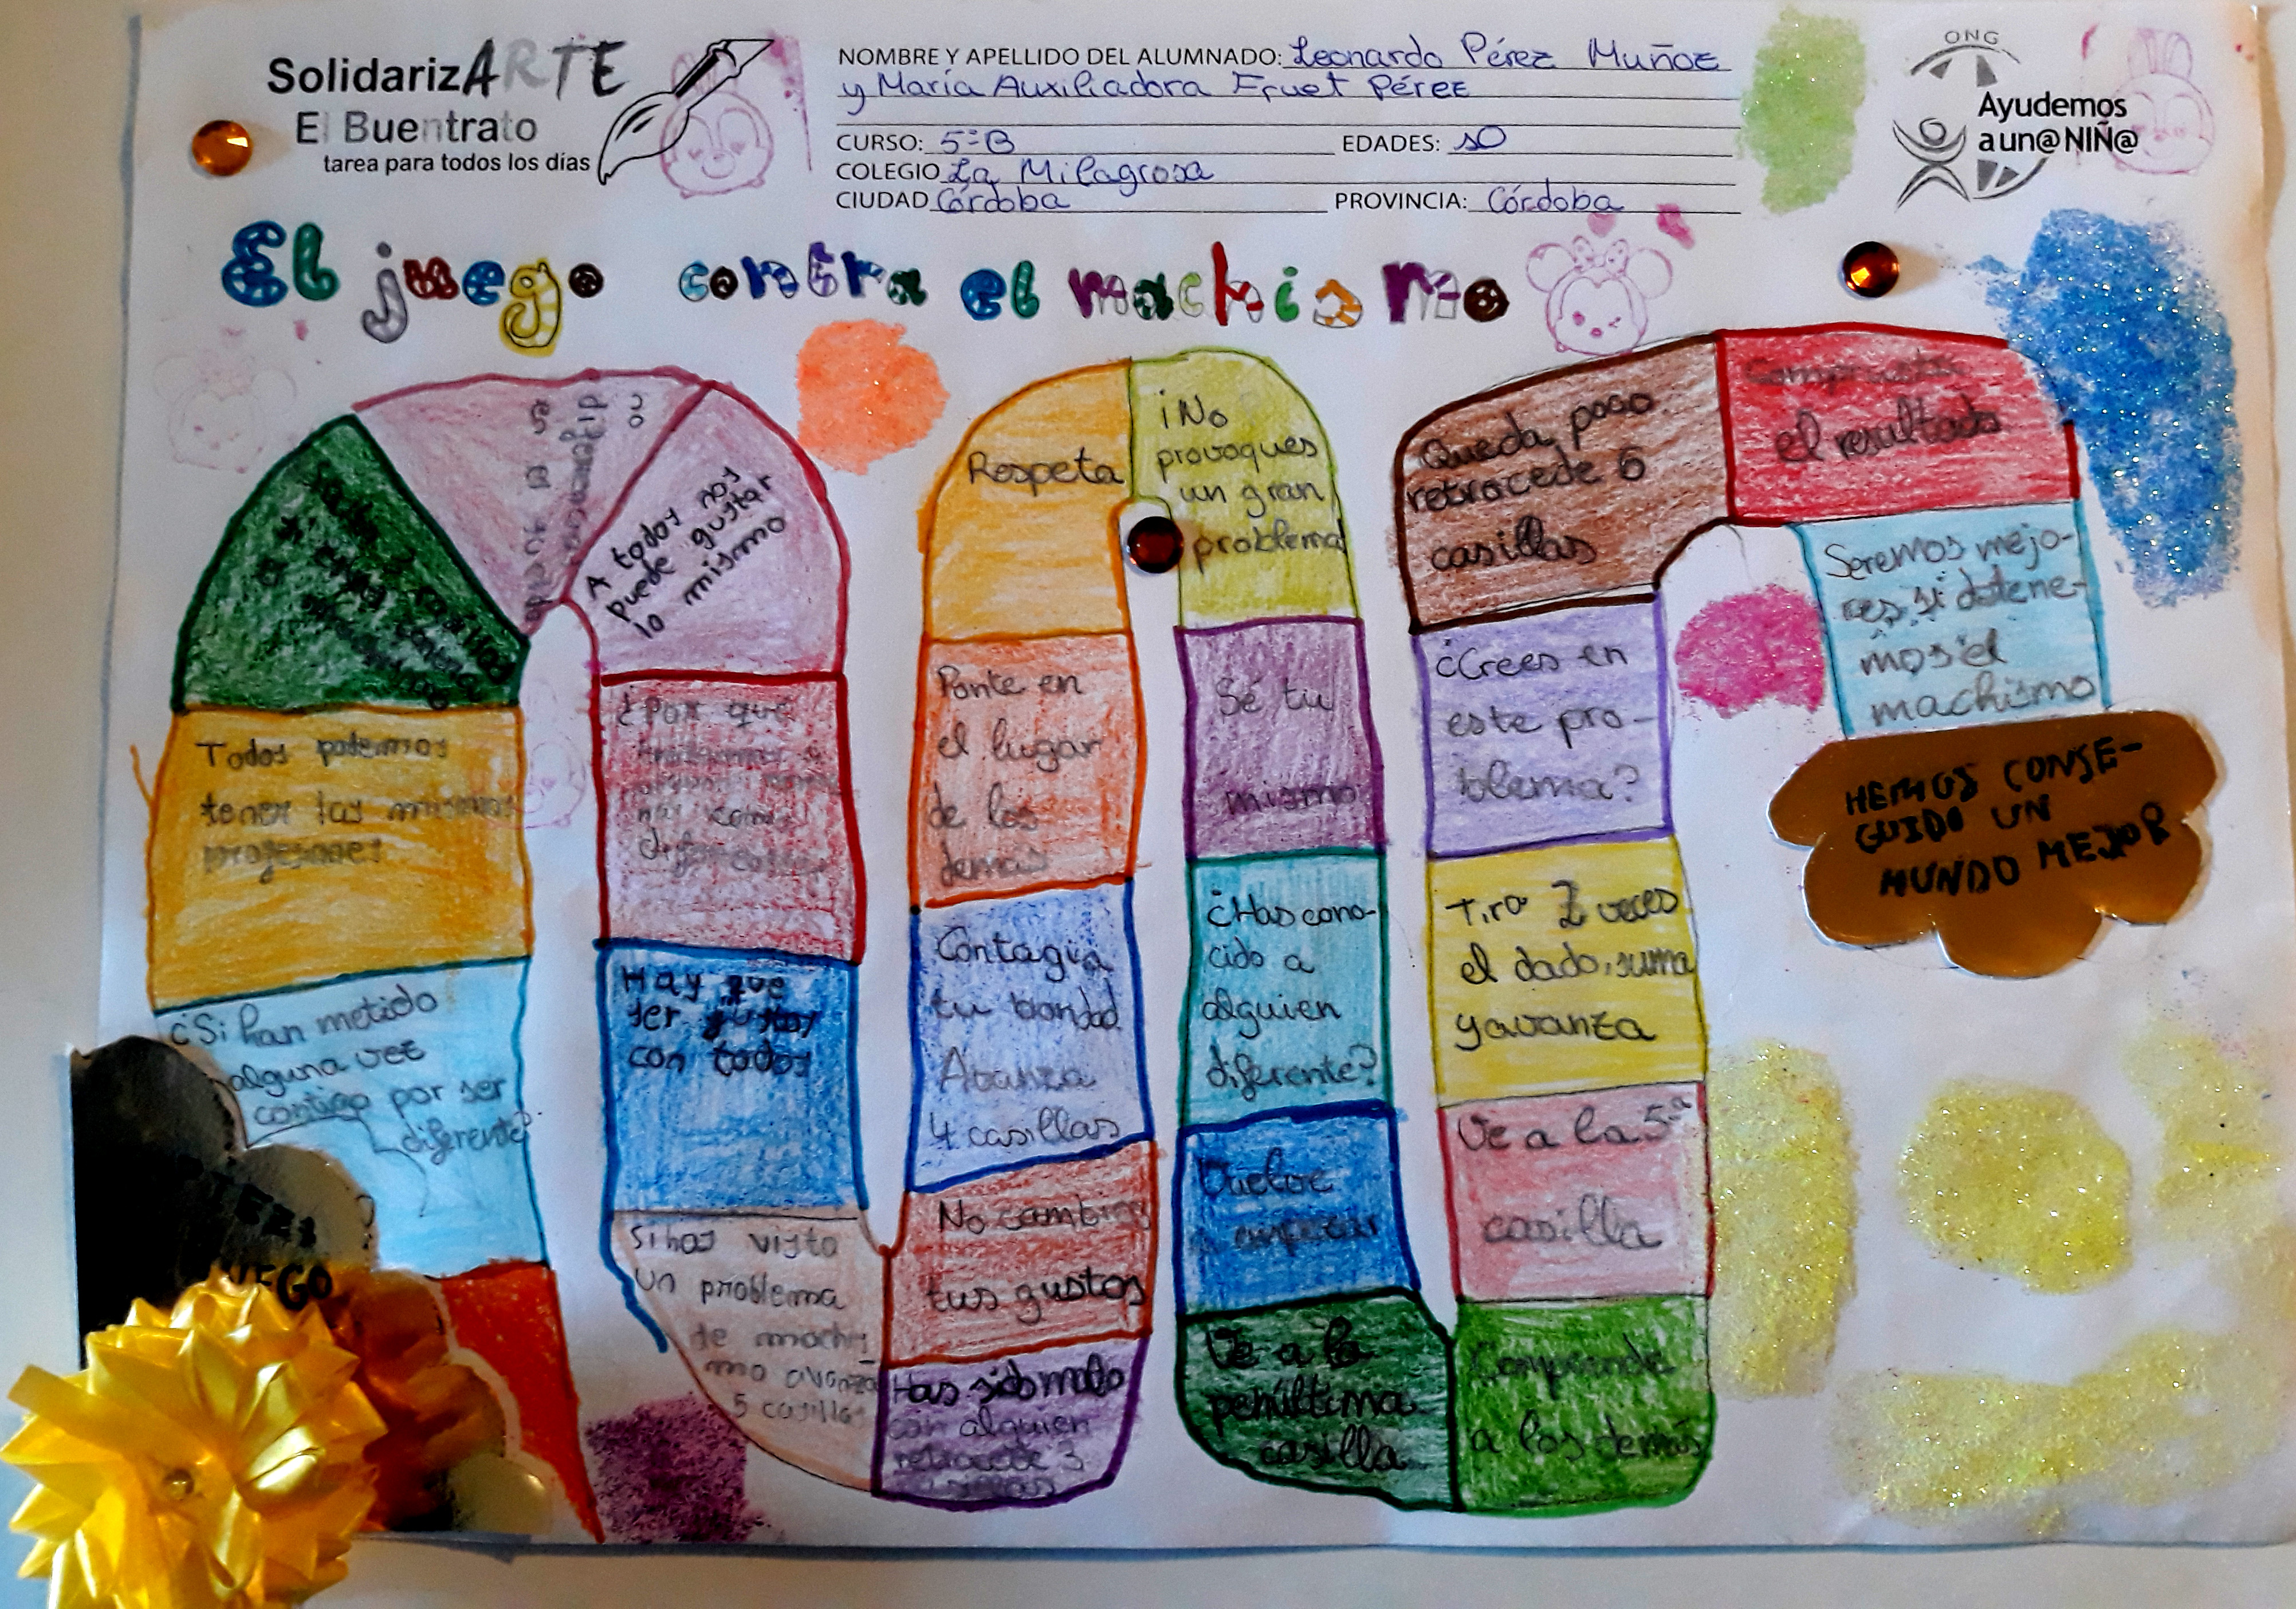 SolidarizARTE
El Buentrato
tarea para todos los días
NOMBRE Y APELLIDO DEL ALUMNADO: Leonardo Pérez Muñoz
y María Auxiliadora Fruet Pérez
CURSO: 5ºB EDADES: 10
COLEGIO La Milagrosa
CIUDAD Córdoba PROVINCIA: Córdoba
ONG
Ayudemos
a un@ NIÑ@
El juego contra el machismo
JUEGO
¿Si han metido
alguna vez
contigo por ser
diferente?
Todos podemos
tener las mismas
profesiones
no
diferencias
es el
A todos nos
puede gustar
lo mismo
¿Por qué
diferentes
Hay que
ser justos
con todos
Si has visto
un problema
de machis
mo avanza
5 casillas
Has sido malo
con alguien
retrocede 3
casillas
No cambies
tus gustos
Contagia
tu bondad
Avanza
4 casillas
Ponte en
el lugar
de los
demás
Respeta
¡No
provoques
un gran
problema!
Sé tu
mismo
¿Has cono-
cido a
alguien
diferente?
Vuelve
a empezar
Ve a la
penúltima
casilla
Comprende
a los demás
Ve a la 5ª
casilla
Tira 2 veces
el dado, suma
y avanza
¿Crees en
este pro-
blema?
Queda poco
retrocede 6
casillas
Comprueba
el resultado
Seremos mejo-
res si detene-
mos el
machismo
HEMOS CONSE-
GUIDO UN
MUNDO MEJOR